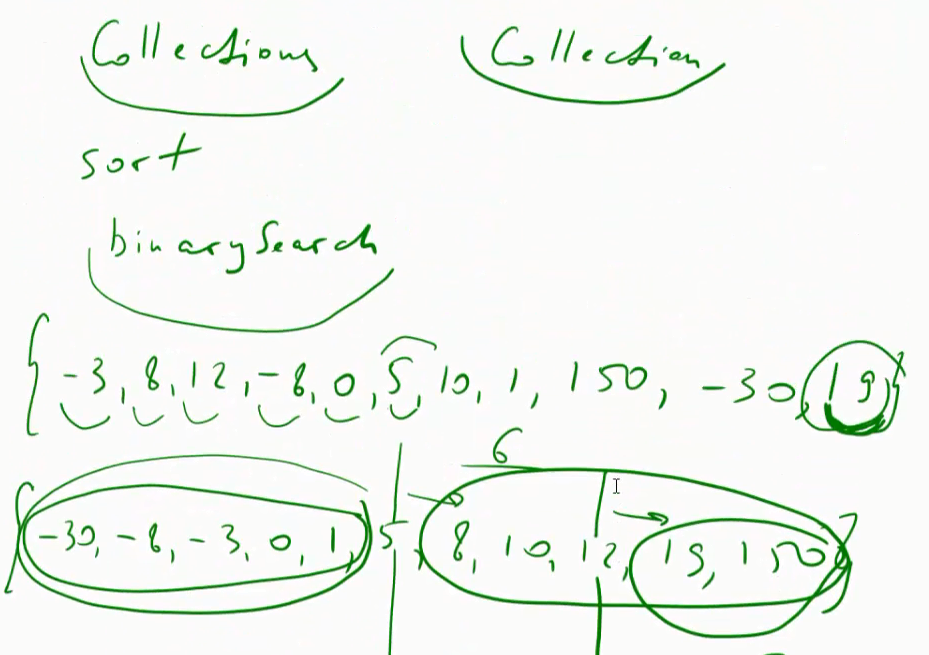 Collections Collection
sort
binarySearch
{-3, 8, 12, -8, 0, 5, 10, 1, 150, -30, 19}
6
{-30, -8, -3, 0, 1, 5, 8, 10, 12, 19, 150}